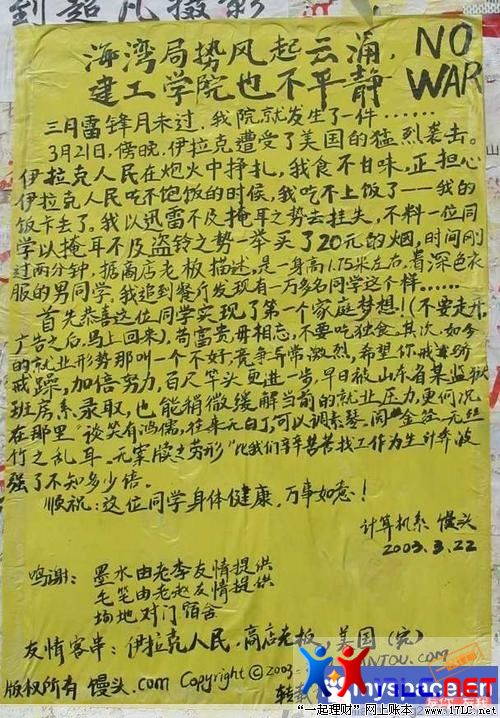 到超凡摄影
海湾局势风起云涌，
建工学院也不平静
NO
WAR
三月雷锋月未过，我院就发生了一件……
3月21日，傍晚，伊拉克遭受了美国的猛烈袭击。
伊拉克人民在炮火中挣扎，我食不甘味，正担心
伊拉克人民吃不饱饭的时候，我吃不上饭了——我的
饭卡丢了。我以迅雷不及掩耳之势去挂失，不料一位同
学以掩耳不及盗铃之势一举买了20元的烟，时间刚
过两分钟，据商店老板描述，是一身高1.75米左右，着深色衣
服的男同学。我追到餐厅发现有一万多名同学这个样……
首先恭喜这位同学实现了第一个家庭梦想！(不要走开，
广告之后，马上回来)。苟富贵，毋相忘，不要吃独食。其次，如今
的就业形势那叫一个不好，竞争异常激烈，希望你戒骄
戒躁，加倍努力，百尺竿头更进一步，早日被山东省某监狱
班房系录取，也能稍微缓解当前的就业压力，更何况
在那里"谈笑有鸿儒，往来无白丁，可以调素琴，阅金经，无丝
竹之乱耳，无案牍之劳形"比我们辛辛苦苦找工作为生计奔波
强了不知多少倍。
顺祝：这位同学身体健康，万事如意！
计算机系 馒头
2003.3.22
鸣谢：墨水由老李友情提供
毛笔由老赵友情提供
场地对门宿舍
友情客串：伊拉克人民，商店老板，美国(完)
版权所有 馒头.com Copyright ©2003
转载
17LC.NET
Myspace.cn
"一起理财"网上账本 www.17LC.net